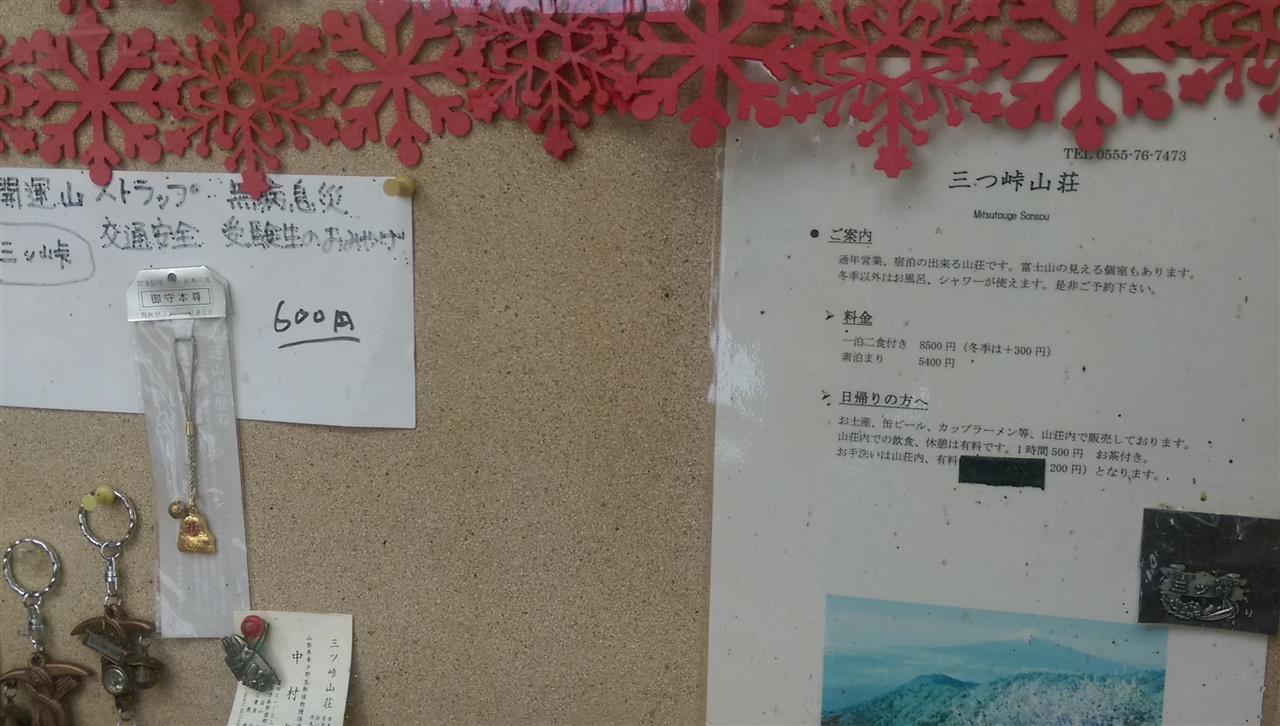 開運山 ストラップ 無病息災
交通安全 受験生のおみやげ
三ッ峠
御守本尊
600円
TEL 0555-76-7473
三つ峠山荘
Mitsutouge Sansou
● ご案内
通年営業、宿泊の出来る山荘です。富士山の見える個室もあります。
冬季以外はお風呂、シャワーが使えます。是非ご予約下さい。
➢ 料金
一泊二食付き 8500円（冬季は＋300円）
素泊まり 5400円
➢ 日帰りの方へ
お土産、缶ビール、カップラーメン等、山荘内で販売しております。
山荘内での飲食、休憩は有料です。1時間500円 お茶付き。
お手洗いは山荘内、有料 200円）となります。
三ツ峠山荘
中村